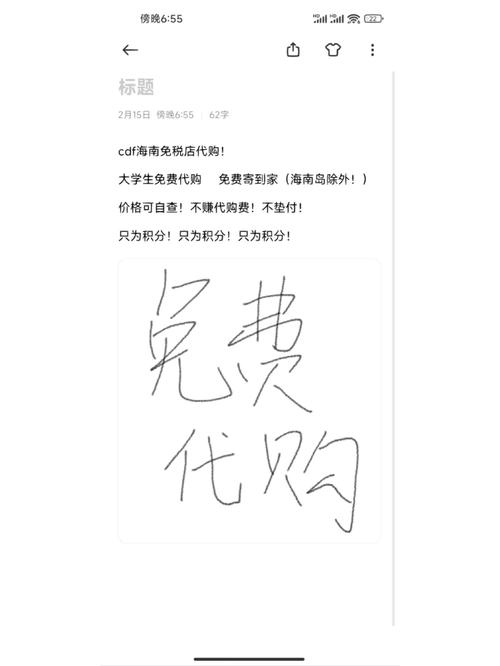 傍晚6:55
HD HD 22
标题
2月15日 傍晚6:55 | 62字
cdf海南免税店代购！
大学生免费代购 免费寄到家（海南岛除外！）
价格可自查！不赚代购费！不垫付！
只为积分！只为积分！只为积分！
免费
代购